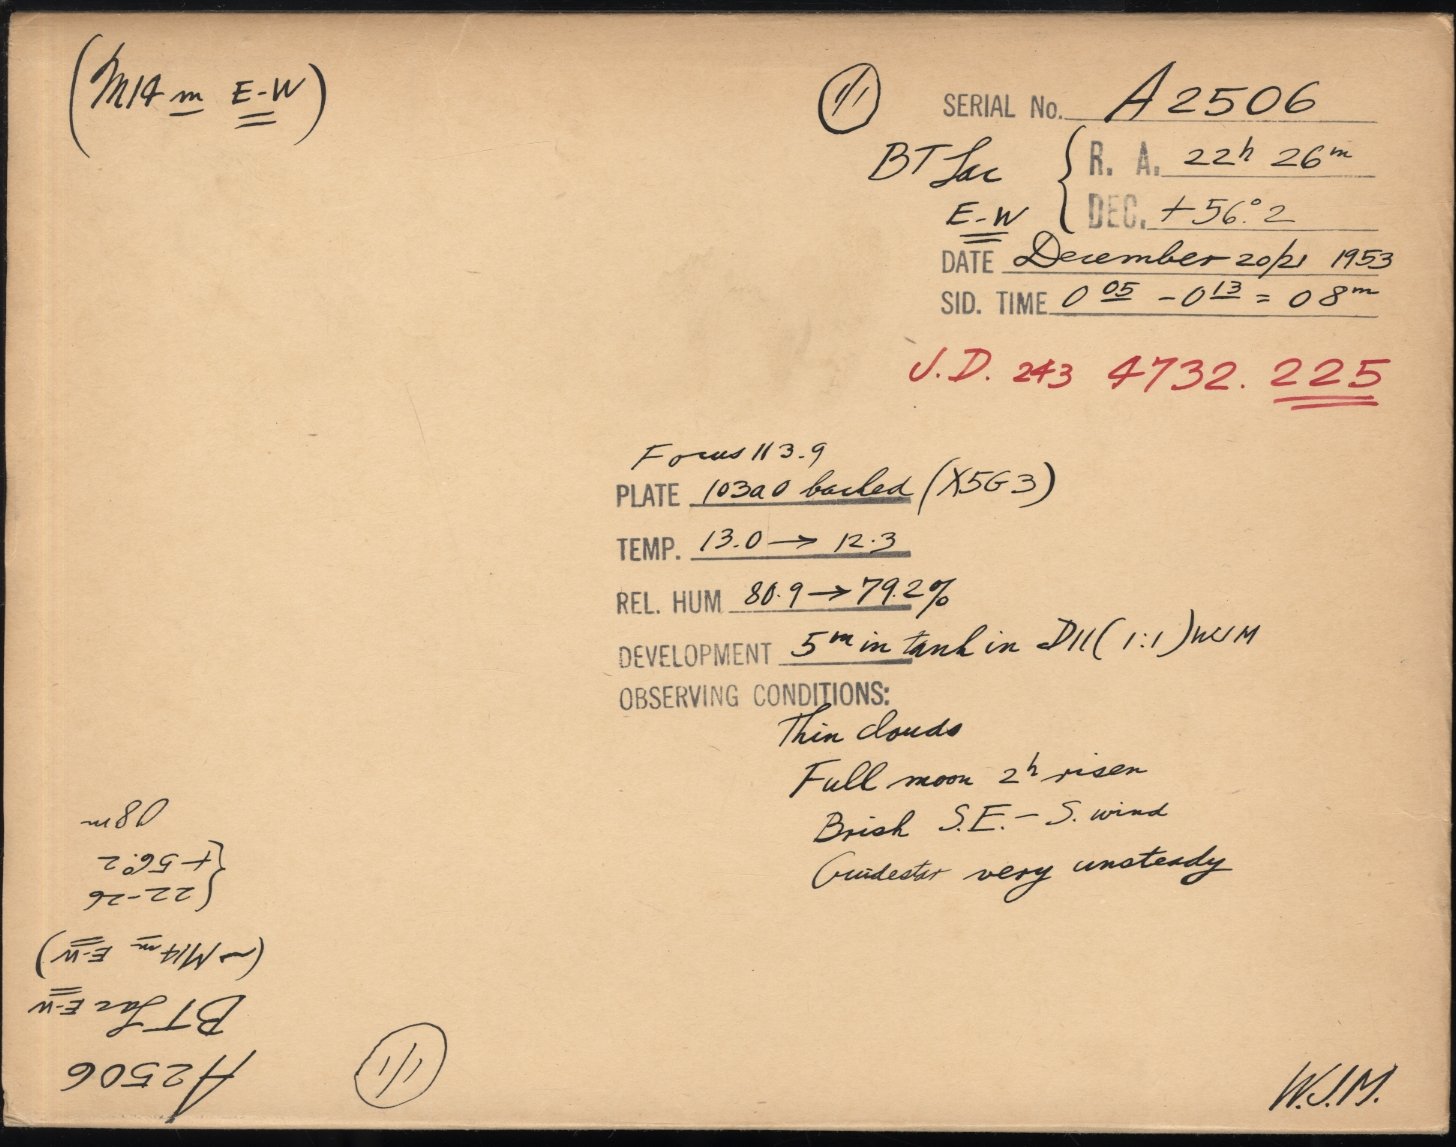 (M14 m E-W)
1/1
SERIAL No. A 2506
BT Lac
E-W
R. A. 22h 26m
DEC. +56°.2
DATE December 20/21 1953
SID. TIME 0 05 - 0 13 = 0 8m
J.D. 243 4732. 225
Focus 113.9
PLATE 103a0 backed (X5G3)
TEMP. 13.0 → 12.3
REL. HUM 80.9 → 79.2%
DEVELOPMENT 5m in tank in D11 (1:1) WJM
OBSERVING CONDITIONS:
Thin clouds
Full moon 2h risen
Brisk S.E. - S. wind
Guidestar very unsteady
W.J.M.
1/1
A2506
BT Lac E-W
(~M14 m E-W)
22-26
+56°.2
08m